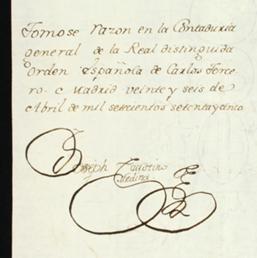 Tomose razon en la Contaduria
general de la Real distinguida
Orden española de Carlos Terce
ro. Madrid veinte y seis de
Abril de mil setecientos setenta y cinco
Joseph Faustino
Medina